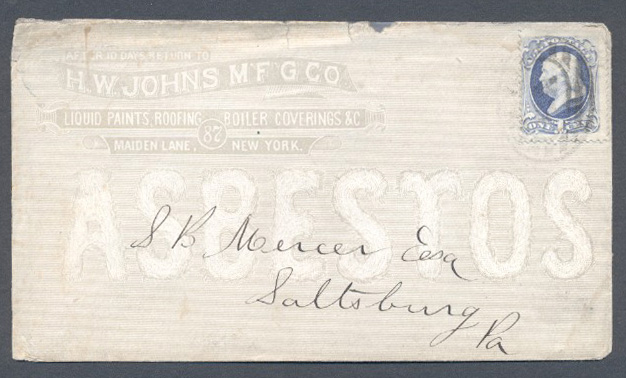 AFTER 10 DAYS RETURN TO
H. W. JOHNS M'F'G CO
LIQUID PAINTS, ROOFING BOILER COVERINGS &C
87
MAIDEN LANE, NEW YORK.
ASBESTOS
S B Mercer Esq
Saltsburg
Pa
ONE CENT